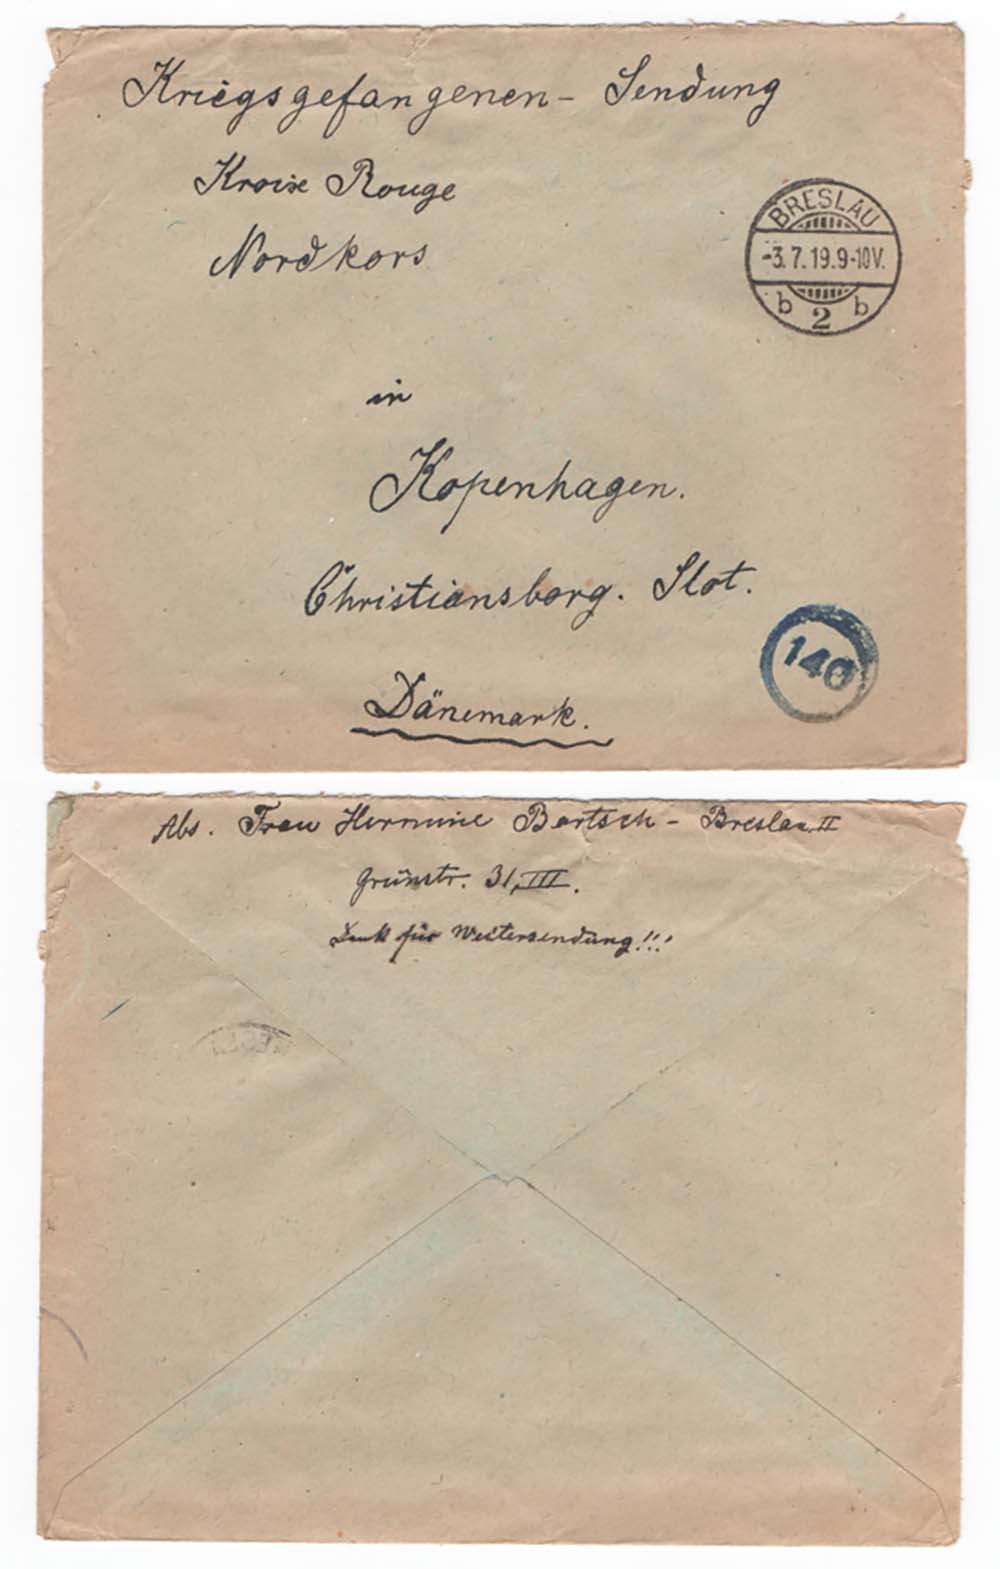 Kriegsgefangenen - Sendung
Kroise Rouge
Nordkors
BRESLAU
-3.7.19.9-10V.
b 2 b
in
Kopenhagen.
Christiansborg. Slot.
140
Dänemark.
Abs. Frau Hermine Bartsch - Breslau II
Grünstr. 31, III.
Dank für Weitersendung!!!